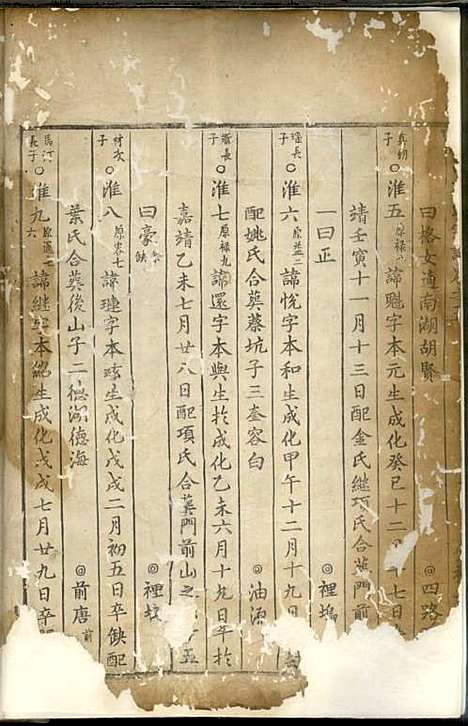 曰格女適南湖胡賢 ◎四路
真幼子 ○淮五 原祿 諱魁字本元生成化癸巳十二 七日
靖壬寅十一月十三日配金氏繼項氏合葬門前
一曰正 ◎裡塢
瑤長子 ○淮六 原益二 諱悅字本和生成化甲午十二月十九
配姚氏合葬蔡坑子三奎容白 ◎油
長子 ○淮七 原祿九 諱還字本與生於成化乙未六月十九日卒於
嘉靖乙未七月廿八日配項氏合葬門前山之 子五
曰豪 缺 ◎裡坟
村次子 ○淮八 原零七 諱璉字本玹生成化戊戌二月初五日卒缺配
葉氏合葬後山子二德湖德海 ◎前唐 前
長子 ○淮九 諱繼 字本 生成化戊戌七月廿九日卒